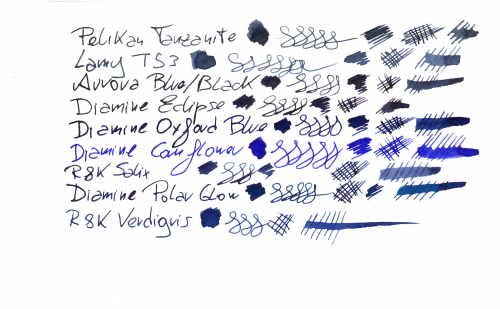 Pelikan Tanzanite
Lamy T53
Aurora Blue/Black
Diamine Eclipse
Diamine Oxford Blue
Diamine Cornflower
R&K Salix
Diamine Polar Glow
R&K Verdigris